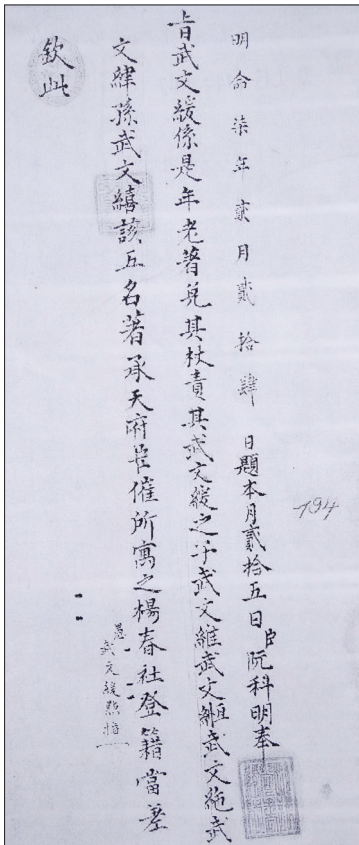 明命柒年貳月貳拾肆日題本月貳拾五日臣阮科明奉
旨武文緩係是年老著免其杖責其武文緩之子武文維武文組武文絁武
文緯孫武文繥該五名著承天府臣催所寓之楊春社登籍當差
欽此
武文緩點指
194